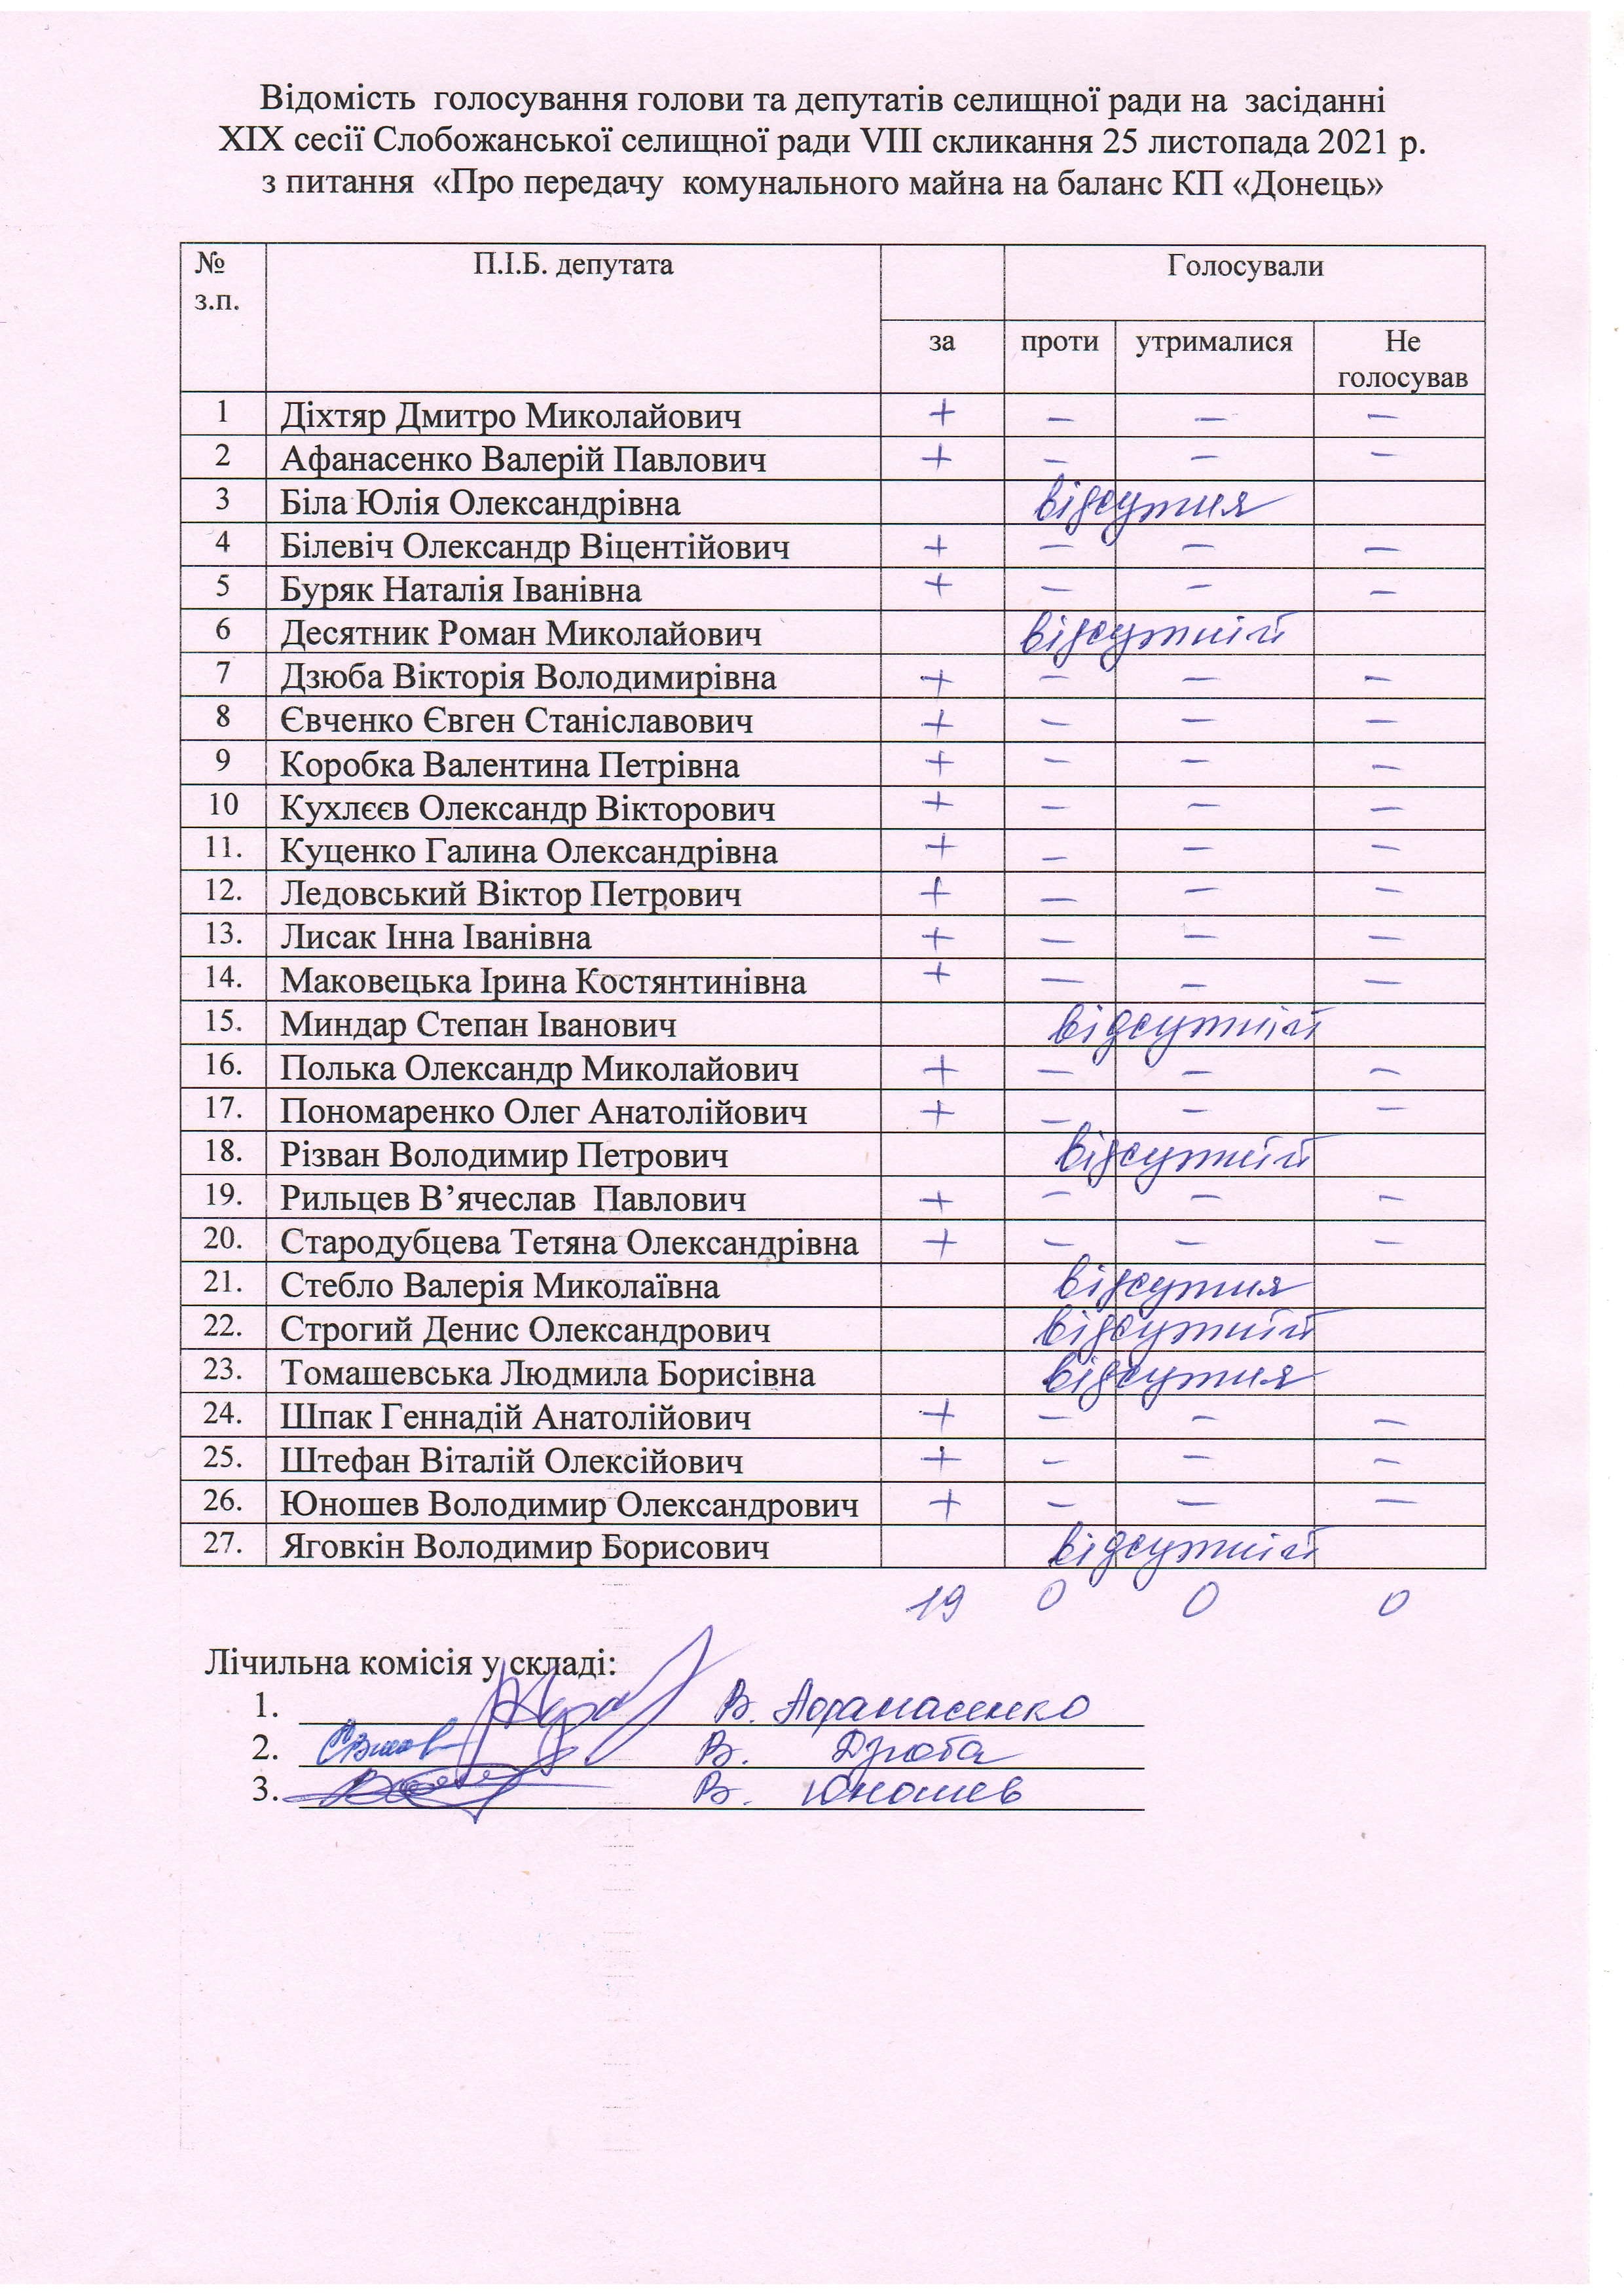 Відомість голосування голови та депутатів селищної ради на засіданні
XIX сесії Слобожанської селищної ради VIII скликання 25 листопада 2021 р.
з питання «Про передачу комунального майна на баланс КП «Донець»
№ з.п. П.І.Б. депутата Голосували
за проти утрималися Не голосував
1 Діхтяр Дмитро Миколайович + – – –
2 Афанасенко Валерій Павлович + – – –
3 Біла Юлія Олександрівна відсутня
4 Білевіч Олександр Віцентійович + – – –
5 Буряк Наталія Іванівна + – – –
6 Десятник Роман Миколайович відсутній
7 Дзюба Вікторія Володимирівна + – – –
8 Євченко Євген Станіславович + – – –
9 Коробка Валентина Петрівна + – – –
10 Кухлєєв Олександр Вікторович + – – –
11. Куценко Галина Олександрівна + – – –
12. Ледовський Віктор Петрович + – – –
13. Лисак Інна Іванівна + – – –
14. Маковецька Ірина Костянтинівна + – – –
15. Миндар Степан Іванович відсутній
16. Полька Олександр Миколайович + – – –
17. Пономаренко Олег Анатолійович + – – –
18. Різван Володимир Петрович відсутній
19. Рильцев В’ячеслав Павлович + – – –
20. Стародубцева Тетяна Олександрівна + – – –
21. Стебло Валерія Миколаївна відсутня
22. Строгий Денис Олександрович відсутній
23. Томашевська Людмила Борисівна відсутня
24. Шпак Геннадій Анатолійович + – – –
25. Штефан Віталій Олексійович + – – –
26. Юношев Володимир Олександрович + – – –
27. Яговкін Володимир Борисович відсутній
19 0 0 0
Лічильна комісія у складі:
1. В. Афанасенко
2. В. Дзюба
3. В. Юношев